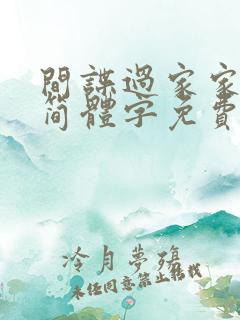 間諜過家家
简體字免費
冷月夢殤
未经同意禁止转载